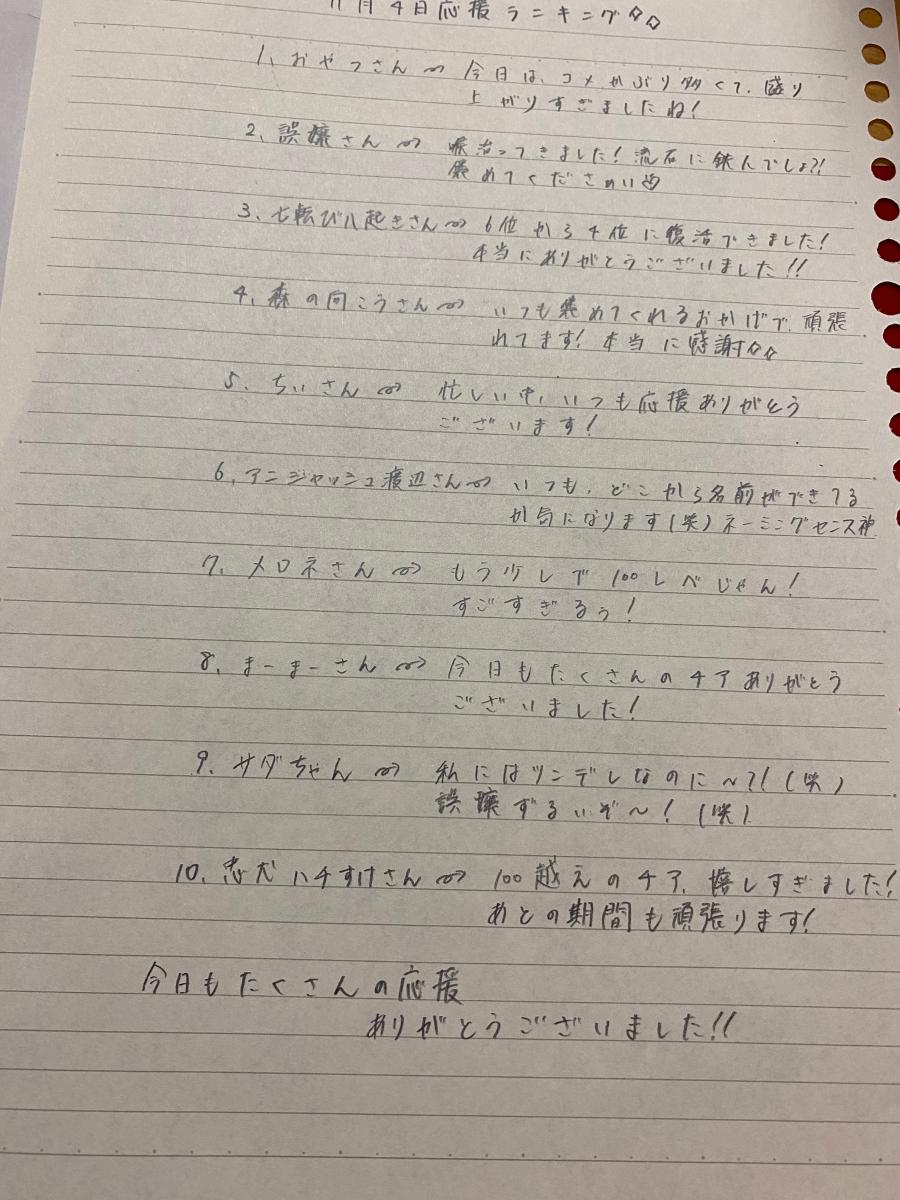 11月4日応援ランキング☆☆
1、おやつさん⇝ 今日は、コメかぶり多くて、盛り
上がりすぎましたね!
2、誤嬢さん⇝ 喉治ってきました!流石に鉄人でしょ?!
褒めてくださぁい♡
3、七転び八起きさん⇝ 6位から4位に復活できました!
本当にありがとうございました!!
4、森の向こうさん⇝ いつも褒めてくれるおかげで、頑張
れてます!本当に感謝☆☆
5、ちぃさん⇝ 忙しい中、いつも応援ありがとう
ございます!
6、アンジャッシュ渡辺さん⇝ いつも、どこから名前ができてる
か気になります(笑)ネーミングセンス神
7、メロネさん⇝ もう少しで100レベじゃん!
すごすぎるぅ!
8、まーまーさん⇝ 今日もたくさんのチアありがとう
ございました!
9、サダちゃん⇝ 私にはツンデレなのに〜?!(笑)
誤嬢ずるいぞ〜!(笑)
10、忠犬ハチすけさん⇝ 100越えのチア、嬉しすぎました!
あとの期間も頑張ります!
今日もたくさんの応援
ありがとうございました!!